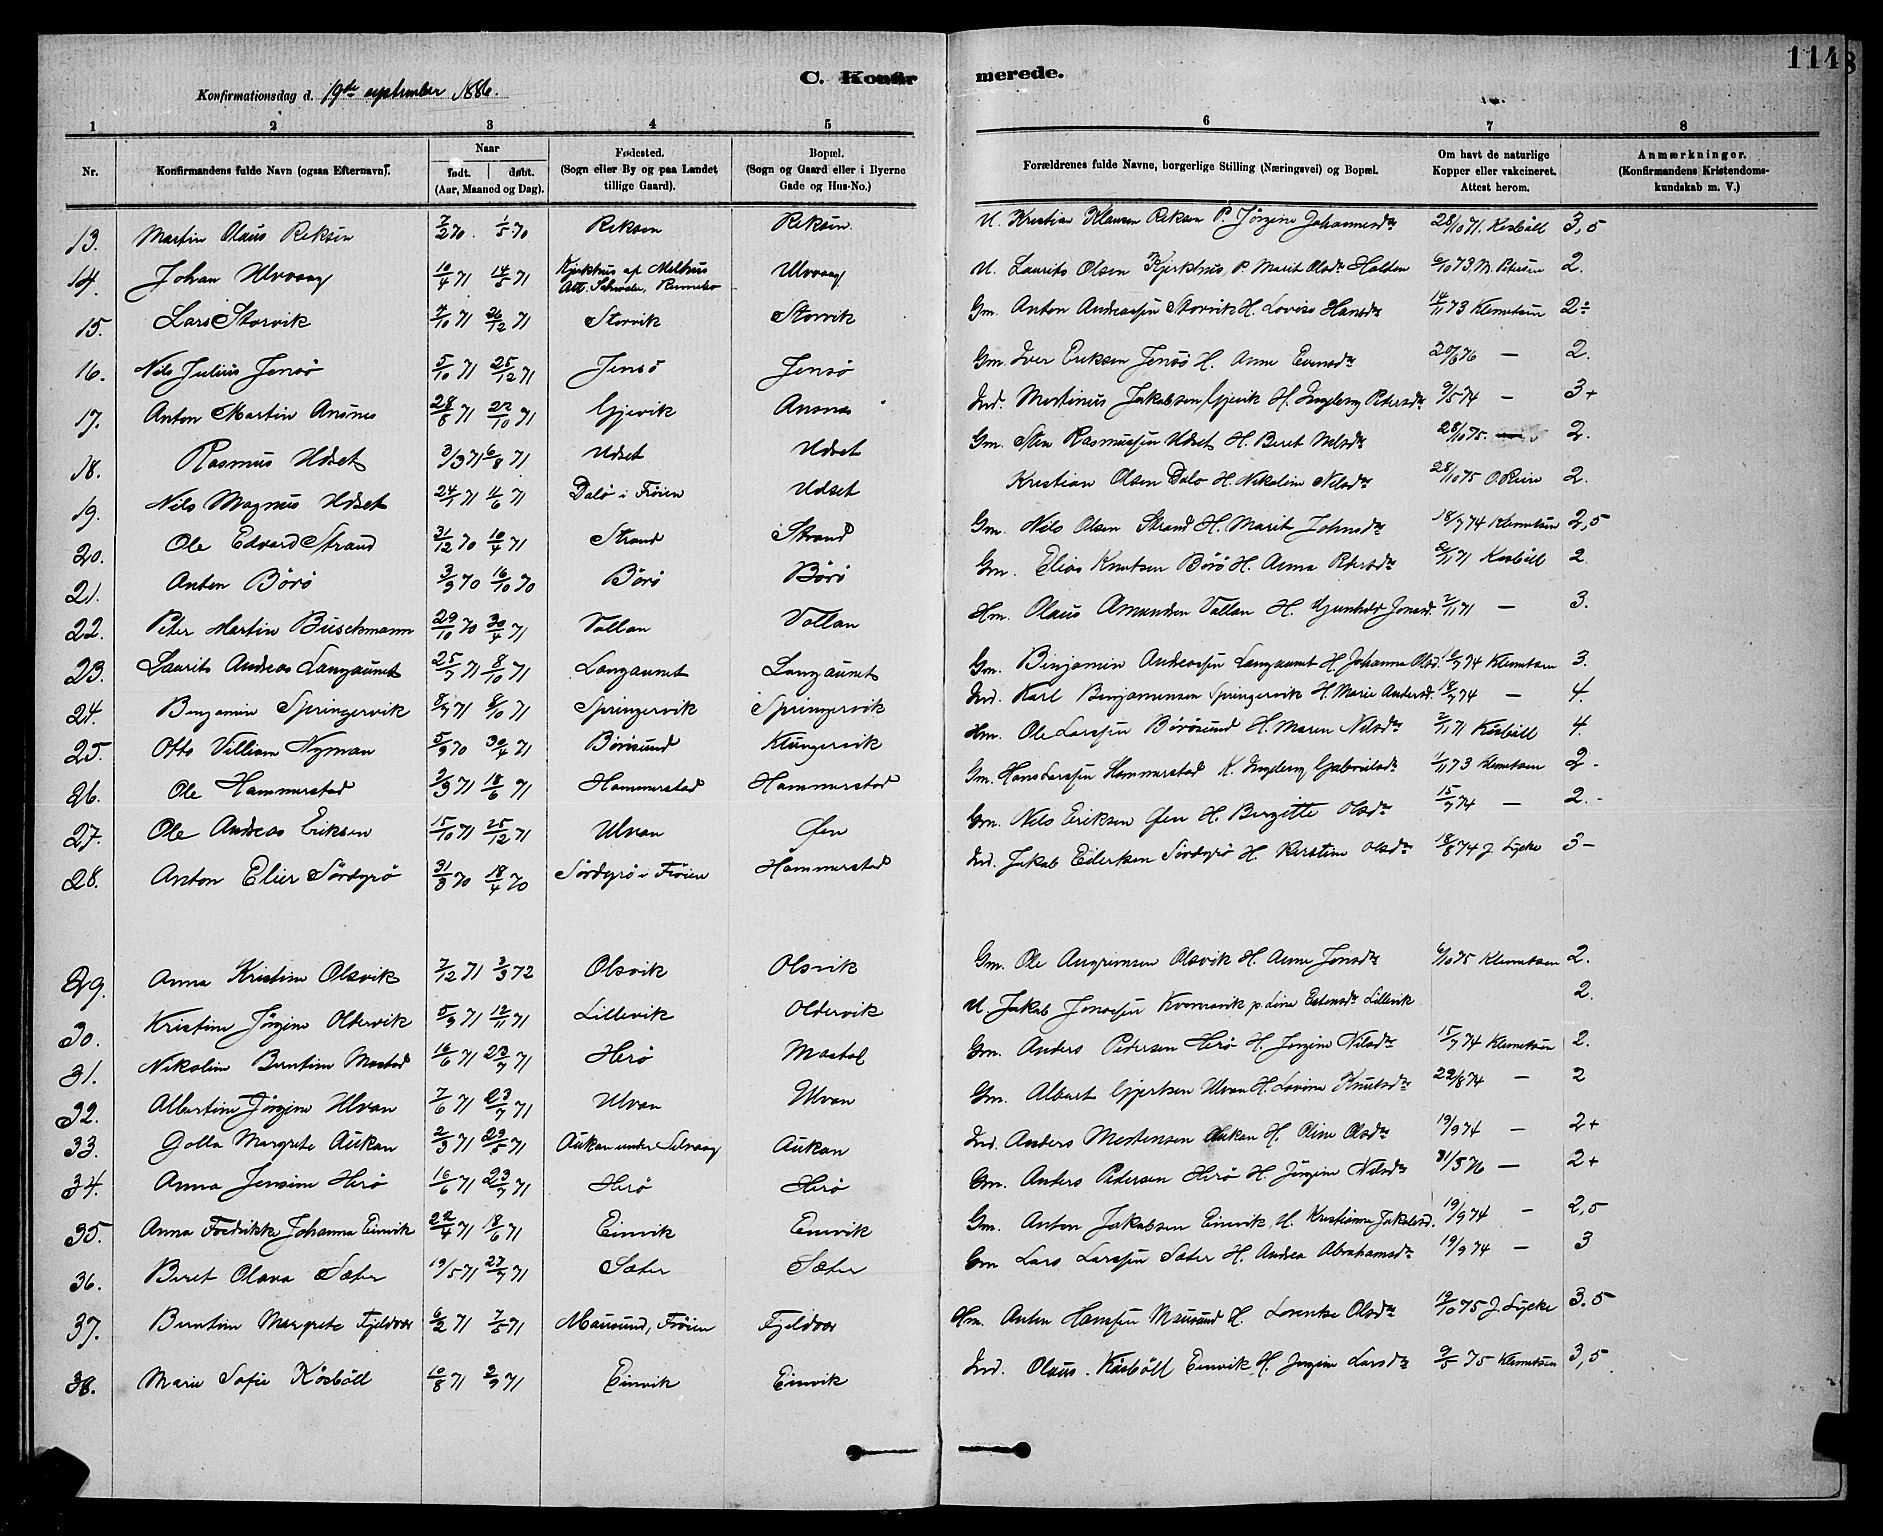 114
C. Konfirmerede.
Konfirmationsdag d. 19de september 1886.
1 2 3 4 5 6 7 8
Nr. Konfirmandens fulde Navn (ogsaa Efternavn). Naar født. døbt. (Aar, Maaned og Dag). Fødested. (Sogn eller By og paa Landet tillige Gaard). Bopæl. (Sogn og Gaard eller i Byerne Gade og Hus-No.) Forældrenes fulde Navne, borgerlige Stilling (Næringsvei) og Bopæl. Om havt de naturlige Kopper eller vakcineret. Attest herom. Anmærkninger. (Konfirmandens Kristendomskundskab m. V.)
13. Martin Olaus Reksen 7/2 70 1/5 70 Reksen Reksen U. Kristian Klausen Reksen P. Jörgine Johannesdr 28/10 71. Kosböll 3,5
14. Johan Ulvvaag 10/4 71 14/5 71 Kjerkhus af Melhus Att. Ulvvaag U. Laurits Olsen Kjerkhus P. Marit Olsdr Halten 6/10 73 M. Petersen 2.
15. Lars Storvik 7/10 71 26/12 71 Storvik Storvik Gm. Anton Andreassen Storvik H. Lovise Hansdr 14/11 73 Klemetsen 2
16. Nils Julius Jensö 5/10 71 25/12 71 Jensö Jensö Gm. Iver Eriksen Jensö H. Anne Evensdr 20/6 76 — 2.
17. Anton Martin Ansnes 28/8 71 22/10 71 Gjevik Ansnes Ind. Martinus Jakobsen Gjevik H. Ingeborg Petersdr 9/5 74 — 3+
18. Rasmus Udset 3/3 71 6/8 71 Udset Udset Gm. Sten Rasmussen Udset H. Beret Nilsdr 28/10 75. 2.
19. Nils Magnus Udset 24/1 71 11/6 71 Dalö i Fröien Udset Kristian Olsen Dalo H. Nikoline Nilsdr 28/10 75 O. Rein 2.
20. Ole Edvard Strand 31/12 70 10/4 71 Strand Strand Gm. Nils Olsen Strand H. Marit Johnsdr 18/7 74 Klemetsen 2,5
21. Anton Börö 3/9 70 16/10 70 Börö Börö Gm. Elias Knutsen Börö H. Anna Petersdr 2/11 71 Kosböll 2.
22. Peter Martin Buschmann 29/10 70 30/4 71 Vallan Vallan Hm. Olaus Amundsen Vallan H. Gunhild Jonsd. 2/11 71 — 3.
23. Laurits Andreas Langaunet 25/7 71 8/10 71 Langaunet Langaunet Gm. Binjamin Andreassen Langaunet H. Johanna Olsd. 18/7 74 Klemetsen 3.
24. Benjamin Springervik 8/7 71 8/10 71 Springervik Springervik Ind. Karl Benjaminsen Springervik H. Marie Andersd. 18/7 74 — 4.
25. Otto Villiam Nyman 5/9 70 30/4 71 Börösund Klungervik Hm. Ole Larssen Börösund H. Maren Nilsdr 2/11 71 Kösböll 4.
26. Ole Hammerstad 2/3 71 18/6 71 Hammerstad Hammerstad Gm. Hans Larssen Hammerstad H. Ingeborg Gabrielsdr 1/11 73 Klemetsen 2-
27. Ole Andreas Eriksen 15/10 71 25/12 71 Ulvan Öen Gm. Nils Eriksen Öen H. Bergitte Olsdr 15/7 74 — 2.-
28. Anton Elier Sördyrö 31/3 70 18/4 70 Sördyrö i Fröien Hammerstad Ind. Jakob Eilertsen Sördyrö H. Kirstine Olsdr 18/8 74 J. Lycke 3-
29. Anna Kristine Olsvik 7/12 71 3/3 72 Olsvik Olsvik Gm. Ole Angrimsen Olsvik H. Anne Jonsdr 6/10 75 Klemetsen 2.
30. Kristine Jörgine Oldervik 5/9 71 12/11 71 Lillevik Oldervik U. Jakob Jonassen Kvernavik p. Line Estensdr Lillevik 2.
31. Nikoline Berntine Mastad 16/6 71 23/7 71 Herö Mastad Gm. Anders Pedersen Herö H. Jörgine Nilsdr 15/7 74 Klemetsen 2.
32. Albertine Jörgine Ulvan 7/6 71 23/7 71 Ulvan Ulvan Gm. Albert Gjertsen Ulvan H. Lovine Knutsdr 22/8 74 — 2
33. Golla Margrete Aukan 2/3 71 29/5 71 Aukan under Selvaag Aukan Ind. Anders Mortensen Aukan H. Oline Olsdr 19/9 74 — 2+
34. Anna Jensine Herö 16/6 71 23/7 71 Herö Herö Gm. Anders Pedersen Herö H. Jörgine Nilsdr 31/5 76 — 2+
35. Anna Fredrikke Johanna Einvik 22/4 71 18/6 71 Einvik Einvik Gm. Anton Jakobsen Einvik H. Kristianna Jakobsd. 19/9 74 — 2,5
36. Beret Olava Sæter 19/5 71 23/7 71 Sæter Sæter Gm Lars Larssen Sæter H. Andrea Abrahamsdr 19/9 74 — 3
37. Berntine Margrete Fjeldvær 6/2 71 7/5 71 Mausund, Fröien Fjeldvær Hm. Anton Hanssen Mausund H. Lorentse Olsdr 12/10 75 J. Lycke 3.5
38. Marie Sofie Kösböll 10/8 71 3/9 71 Einvik Einvik Ind. Olaus Kösböll Einvik H. Jörgine Larsdr 9/5 75 Klemetsen 3,5